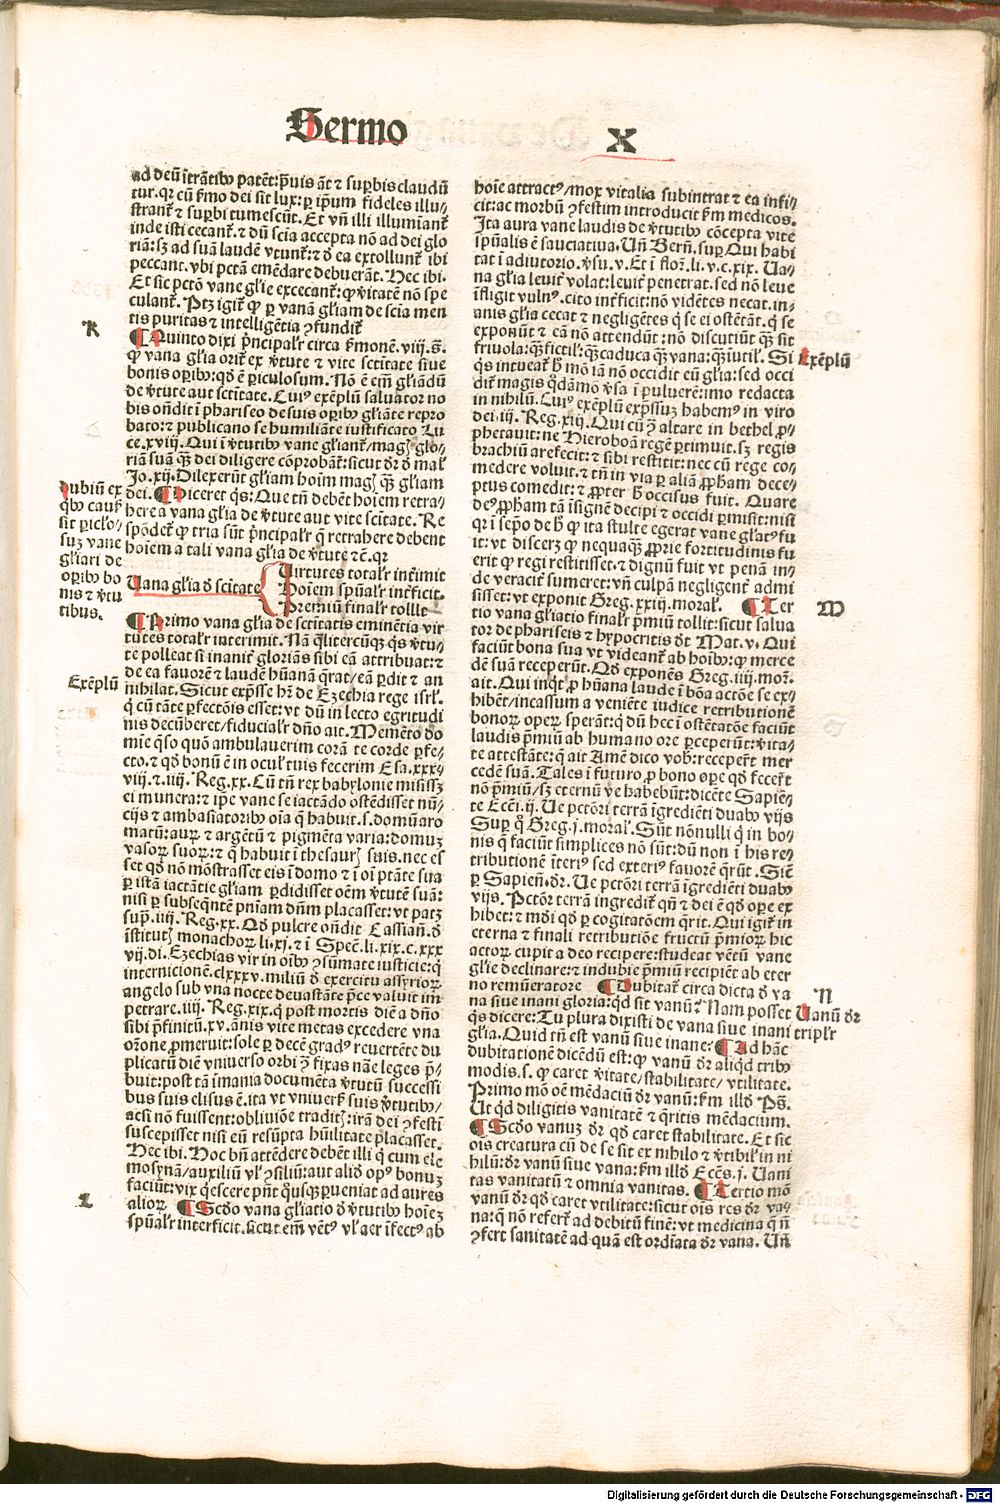 Sermo
X
ad deū ītrātibꝰ patēt: p̄uis āt ⁊ suꝑbis claudū
tur. qꝛ cū ẜmo dei sit lux: ꝑ ip̄um fideles illu-
strant᷑ ⁊ suꝑbi tumescūt. Et vn̄ illi illumiant᷑
inde isti cecant᷑. ⁊ dū scia accepta nō ad dei glo
riā: sꝫ ad suā laudē vtunt᷑: ⁊ d̄ ea extollunt᷑ ibi
peccant. vbi pctā emēdare debuerāt. Hec ibi.
Et sic pctō vane glie excecant᷑: ꝙ v̄itatē nō spe
culant᷑. Ptꝫ igit᷑ ꝙ ꝑ vanā gliam de scia men
tis puritas ⁊ intelligētia ↄfundit᷑
K
¶ Quinto dixi p̄ncipalr̄ circa ẜmonē. viij. s̄.
ꝙ vana glia orit᷑ ex v̄tute ⁊ vite sctitate siue
bonis oꝑibꝰ: qd̄ ē ꝑiculosum. Nō ē em̄ gliādū
de v̄tute aut sctitate. Cuiꝰ exēplū saluator no
bis on̄dit ī phariseo de suis oꝑibꝰ gliāte repro
bato: ⁊ publicano se humiliāte iustificato Lu
ce. xviij. Qui ī v̄tutibꝰ vane gliant᷑/magꝭ glo-
riā suā qꝫ dei diligere cōprobāt᷑: sicut dr̄ d̄ mal᷑
Jo. xij. Dilexerūt gliam hoīm magꝭ qꝫ gliam
dei. ¶ Diceret qs̄: Que tn̄ debēt hoīem retra-
here a vana glia de v̄tute aut vite scitate. Re
spōdet᷑ ꝙ tria sūt p̄ncipalr̄ q̄ retrahere debent
hoīem a tali vana glia de v̄tute ⁊c̄. qꝛ
dubiū ex
qbꝰ caus᷑
sit ꝑiclo-
suꝫ vane
gliari de
oꝑibꝰ bo
nis ⁊ v̄tu
tibus.
Vana glia d̄ scitate
Virtutes totalr̄ int̓imit
Hoīem spūalr̄ int̓ficit.
Premiū finalr̄ tollit
¶ Primo vana glia de sctitatis eminētia vir
tutes totalr̄ interimit. Nā q̄litercūqꝫ qs̄ v̄tu-
te polleat si inanit᷑ gloriās sibi eā attribuat: ⁊
de ea fauorē ⁊ laudē hūanā q̄rat/eā ꝑdit ⁊ an
nihilat. Sicut exp̄sse hr̄ de Ezechia rege isrl᷑.
Exēplū
q̄ cū tāte ꝑfectōis esset: vt dū in lecto egritudi
nis decūberet/fiducialr̄ dn̄o ait. Memēto do
mīe q̄so quō ambulauerim corā te corde ꝑfe-
cto. ⁊ qd̄ bonū ē in ocul᷑ tuis fecerim Esa. xxx-
viij. ⁊. iiij. Reg. xx. Cū tn̄ rex babylonie misissꝫ
ei munera: ⁊ ip̄e vane se iactādo ostēdisset nū-
cijs ⁊ ambasiatoribꝰ oīa q̄ habuit. s. domū aro
matū: auꝝ ⁊ argētū ⁊ pigmēta varia: domuꝫ
vasoꝝ suoꝝ: ⁊ q̄ habuit ī thesaurꝭ suis. nec es
set qd̄ nō mōstrasset eis ī domo ⁊ ī oī ptāte sua
ꝑ istā iactātie gliam ꝑdidisset oēm v̄tutē suā:
nisi ꝑ subseq̄ntē pn̄iam dn̄m placasset: vt patꝫ
sup̄. iiij. Reg. xx. Qd̄ pulcre on̄dit Cassian̄. d̄
īstitutꝭ monachoꝝ li. xj. ⁊ ī Specl̄. li. xix. c. xxx
vij. di. Ezechias vir in oībꝰ ↄsūmate iusticie: q̄
internicionē. clxxxv. miliū d̄ exercitu assyrioꝝ
angelo sub vna nocte deuastāte p̄ce valuit im
petrare. iiij. Reg. xix. q̄ post mortis diē a dn̄o
sibi p̄finitū. xv. ānis vite metas excedere vna
or̄one ꝓmeruit: sole ꝑ decē gradꝰ reuertēte du
plicatū diē vniuerso orbi ↄ̄ fixas nāe leges p̄-
buit: post tā īmania documēta v̄tutū successi
bus suis elisus ē. ita vt vniuers᷑ suis v̄tutibꝰ/
acsi nō fuissent: obliuiōe traditꝭ: irā dei ↄfestī
suscepisset nisi eū resūpta hūilitate placasset.
Hec ibi. Hoc bn̄ attēdere debēt illi q̄ cum ele
mosynā/auxiliū vl᷑ ↄsiliū: aut aliqd̄ opꝰ bonuꝫ
faciūt: vix q̄escere pn̄t q̄usqꝫ ꝑueniat ad aures
L
alioꝝ ¶ Scd̄o vana gliatio d̄ v̄tutibꝰ hoīeꝫ
spūalr̄ interficit. sicut em̄ vētꝰ vl᷑ aer īfectꝰ ab
hoīe attractꝰ/mox vitalia subintrat ⁊ ea infi-
cit: ac morbū ↄfestim introducit ẜm medicos.
Ita aura vane laudis de v̄tutibꝰ cōcepta vite
spūalis ē sauciatiua. Un̄ Bern̄. suꝑ Qui habi
tat ī adiutorio. v̄su. v. Et ī floꝝ. li. v. c. xix. Ua-
na glia leuit᷑ volat: leuit᷑ penetrat. sed nō leue
īfligit vulnꝰ. cito int̓ficit: nō vidētes necat. in-
anis glia cecat ⁊ negligētes q̄ se ei ostētāt. q̄ se
exponūt ⁊ eā nō attendūt: nō discutiūt qꝫ sit
friuola: qꝫ fictil᷑: qꝫ caduca qꝫ vana: qꝫ īutil᷑. Si
Exēplū
q̄s intueat᷑ h̄ mō iā nō occidit eū glia: sed occi
dit᷑ magis q̄dāmō v̄sa ī puluerē: imo redacta
in nihilū. Cuiꝰ exēplū exp̄ssuꝫ habemꝰ in viro
dei. iij. Reg. xiij. Qui cū ↄ̄ altare in bethel ꝓ-
phetauit: ne Hieroboā regē ꝑtimuit. sꝫ regis
brachiū arefecit: ⁊ sibi restitit: nec cū rege co-
medere voluit. ⁊ tn̄ in via ꝑ aliā ꝓp̄ham dece-
ptus comedit: ⁊ ꝓpter h̄ occisus fuit. Quare
deꝰ ꝓp̄ham tā īsignē decipi ⁊ occidi ꝑmisit: nisi
qꝛ ī seip̄o de h̄ ꝙ ita stulte egerat vane glatꝰ fu
it: vt discerꝫ ꝙ nequaqꝫ ꝓprie fortitudinis fu
erit ꝙ regi restitisset. ⁊ dignū fuit vt penā in-
de veracit᷑ sumeret: vn̄ culpā negligent᷑ admi
sisset: vt exponit Greg. xxiij. moral᷑. ¶ Ter
M
tio vana gliatio finalr̄ p̄miū tollit: sicut salua
tor de phariseis ⁊ hypocritis dr̄ Mat. v. Qui
faciūt bona sua vt videant᷑ ab hoībꝰ: ꝙ merce
dē suā receperūt. Qd̄ exponēs Greg. iiij. moꝝ.
ait. Qui inqt ꝓ hūana laude ī bōa actōe se ex-
hibēt/incassum a veniēte iudice retributionē
bonoꝝ opeꝝ sperāt: q̄ dū hec ī ostētatōe faciūt
laudis p̄miū ab humano ore ꝑceperūt: v̄ita-
te attestāte: q̄ ait Amē dico vob᷑: recepert᷑ mer
cedē suā. Tales ī futuro ꝓ bono oꝑe qd̄ fecert᷑
nō p̄miū/sꝫ eternū ve habebūt: dicēte Sapiē-
te Ecc̄i. ij. Ue pctōri terrā īgrediēti duabꝰ vijs
Suꝑ q̄ Greg. j. moral᷑. Sūt nōnulli q̄ in bo-
nis q̄ faciūt simplices nō sūt: dū non ī his re-
tributionē īteriꝰ sed exteriꝰ fauorē q̄rūt. Sic̄
ꝑ Sapien̄. dr̄. Ue pctōri terrā īgrediēti duabꝰ
vijs. Pctōr terrā ingredit᷑ qn̄ ⁊ dei ē qd̄ oꝑe ex
hibet: ⁊ mūdi qd̄ ꝑ cogitatōem q̄rit. Qui igit᷑ in
eterna ⁊ finali retributiōe fructū p̄mioꝝ hic
actoꝝ cupit a deo recipere: studeat vētū vane
glie declinare: ⁊ indubie p̄miū recipiēt ab eter
no remūeratore ¶ Dubitat᷑ circa dicta d̄ va
N
na siue inani gloria: qd̄ sit vanū? Nam posset
Uanū dr̄
triplr̄
q̄s dicere: Tu plura dixisti de vana siue inani
glia. Quid tn̄ est vanū siue inane? ¶ Ad hāc
dubitationē dicēdū est: ꝙ vanū dr̄ aliqd̄ tribꝰ
modis. s. ꝙ caret v̄itate/stabilitate/vtilitate.
Primo mō oē mēdaciū dr̄ vanū: ẜm illd̄ Ps̄.
Ut qd̄ diligitis vanitatē ⁊ q̄ritis mēdacium.
¶ Scd̄o vanuꝫ dr̄ qd̄ caret stabilitate. Et sic
oīs creatura cū de se sit ex nihilo ⁊ v̄tibil᷑ in ni
hilū: dr̄ vanū siue vana: ẜm illd̄ Ecc̄s. j. Uani
tas vanitatū ⁊ omnia vanitas. ¶ Tertio mō
vanū dr̄ qd̄ caret vtilitate: sicut oīs res dr̄ va-
na: q̄ nō refert᷑ ad debitū finē: vt medicina q̄ n̄
ↄfert sanitatē ad quā est ordīata dr̄ vana. Un̄
Digitalisierung gefördert durch die Deutsche Forschungsgemeinschaft - DFG